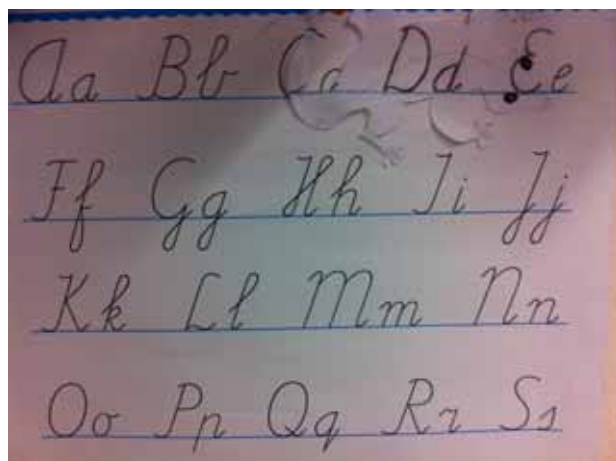 Aa Bb Cc Dd Ee
Ff Gg Hh Ii Jj
Kk Ll Mm Nn
Oo Pp Qq Rr Ss